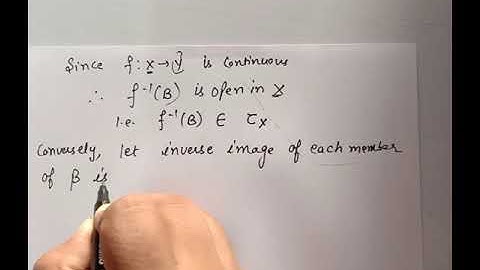 Since f: x → y is continuous
∴ f⁻¹(B) is open in X
i.e. f⁻¹(B) ∈ τx
Conversely, let inverse image of each member
of β is